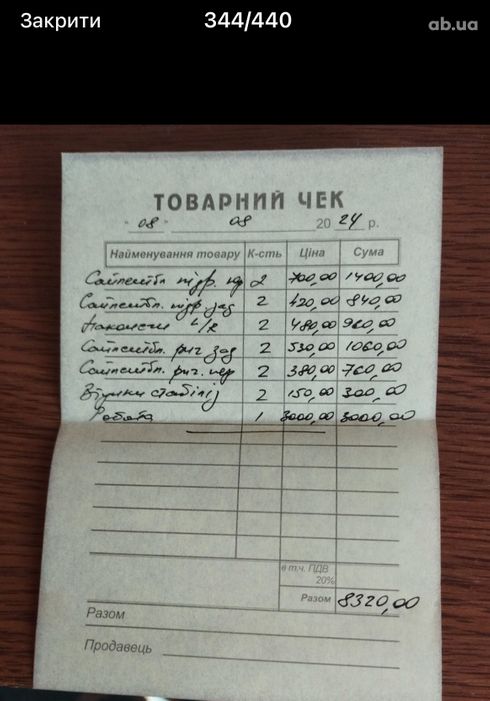 Закрити 344/440 ab.ua
ТОВАРНИЙ ЧЕК
"08" 08 2024 р.
Найменування товару К-сть Ціна Сума
Сайлентбл. підр. пер 2 700,00 1400,00
Сайлентбл. підр. зад 2 420,00 840,00
Наконечн L/R 2 480,00 960,00
Сайлентбл. рич. зад 2 530,00 1060,00
Сайлентбл. рич. пер 2 380,00 760,00
Втулки стабіліз 2 150,00 300,00
Робота 1 3000,00 3000,00
в т.ч. ПДВ
20%
Разом 8320,00
Разом
Продавець